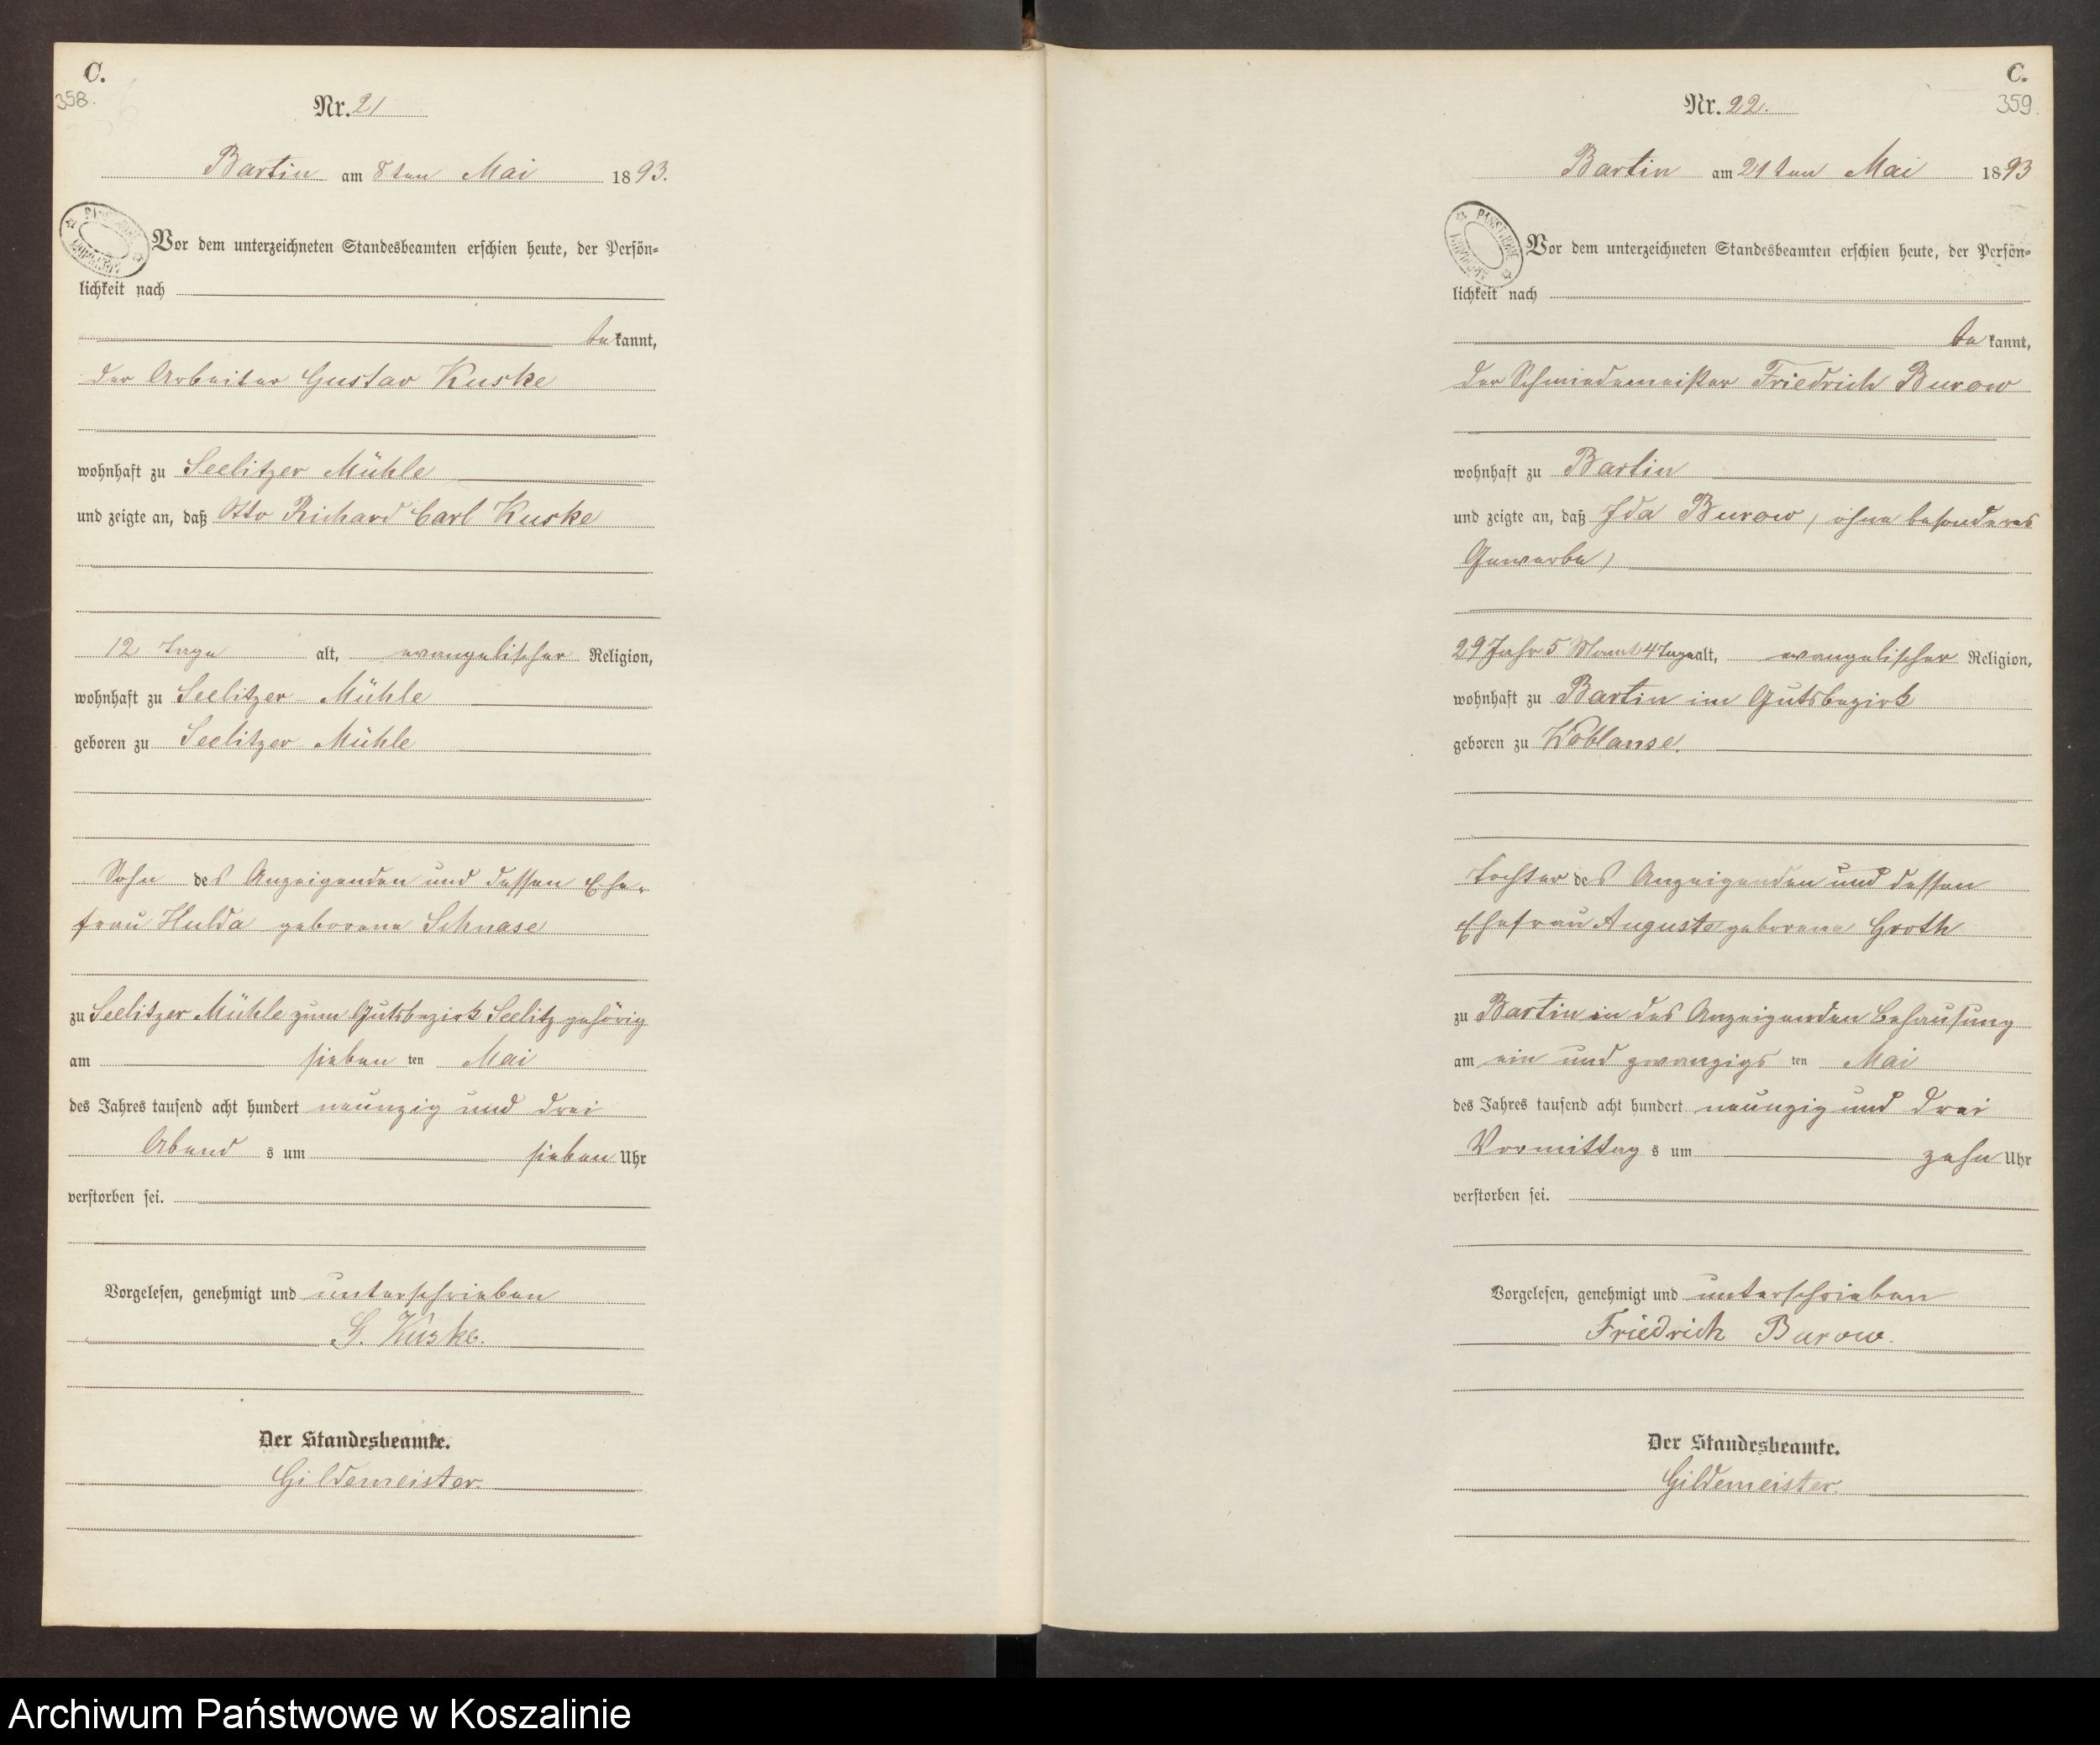 C.
358.
Nr. 21
Bartin am 8ten Mai 1893.
Vor dem unterzeichneten Standesbeamten erschien heute, der Persön-
lichkeit nach
bekannt,
der Arbeiter Gustav Kuske
wohnhaft zu Seelitzer Mühle
und zeigte an, daß Otto Richard Carl Kuske
12 Tage alt, evangelischer Religion,
wohnhaft zu Seelitzer Mühle
geboren zu Seelitzer Mühle
Sohn des Anzeigenden und dessen Ehe-
frau Hulda geborene Schnase
zu Seelitzer Mühle zum Gutsbezirk Seelitz gehörig
am sieben ten Mai
des Jahres tausend acht hundert neunzig und drei
Abend s um sieben Uhr
verstorben sei.
Vorgelesen, genehmigt und unterschrieben
G. Kuske.
Der Standesbeamte.
Gildemeister.
C.
359.
Nr. 22.
Bartin am 21ten Mai 1893
Vor dem unterzeichneten Standesbeamten erschien heute, der Persön-
lichkeit nach
bekannt,
der Schmiedemeister Friedrich Burow
wohnhaft zu Bartin
und zeigte an, daß Ida Burow, (ohne besonderes
Gewerbe)
29 Jahr 5 Monat 4 Tage alt, evangelischer Religion,
wohnhaft zu Bartin im Gutsbezirk
geboren zu Woblanse.
Tochter des Anzeigenden und dessen
Ehefrau Auguste geborene Groth
zu Bartin in des Anzeigenden Behausung
am ein und zwanzigs ten Mai
des Jahres tausend acht hundert neunzig und drei
Vormittag s um zehn Uhr
verstorben sei.
Vorgelesen, genehmigt und unterschrieben
Friedrich Burow.
Der Standesbeamte.
Gildemeister.
Archiwum Państwowe w Koszalinie